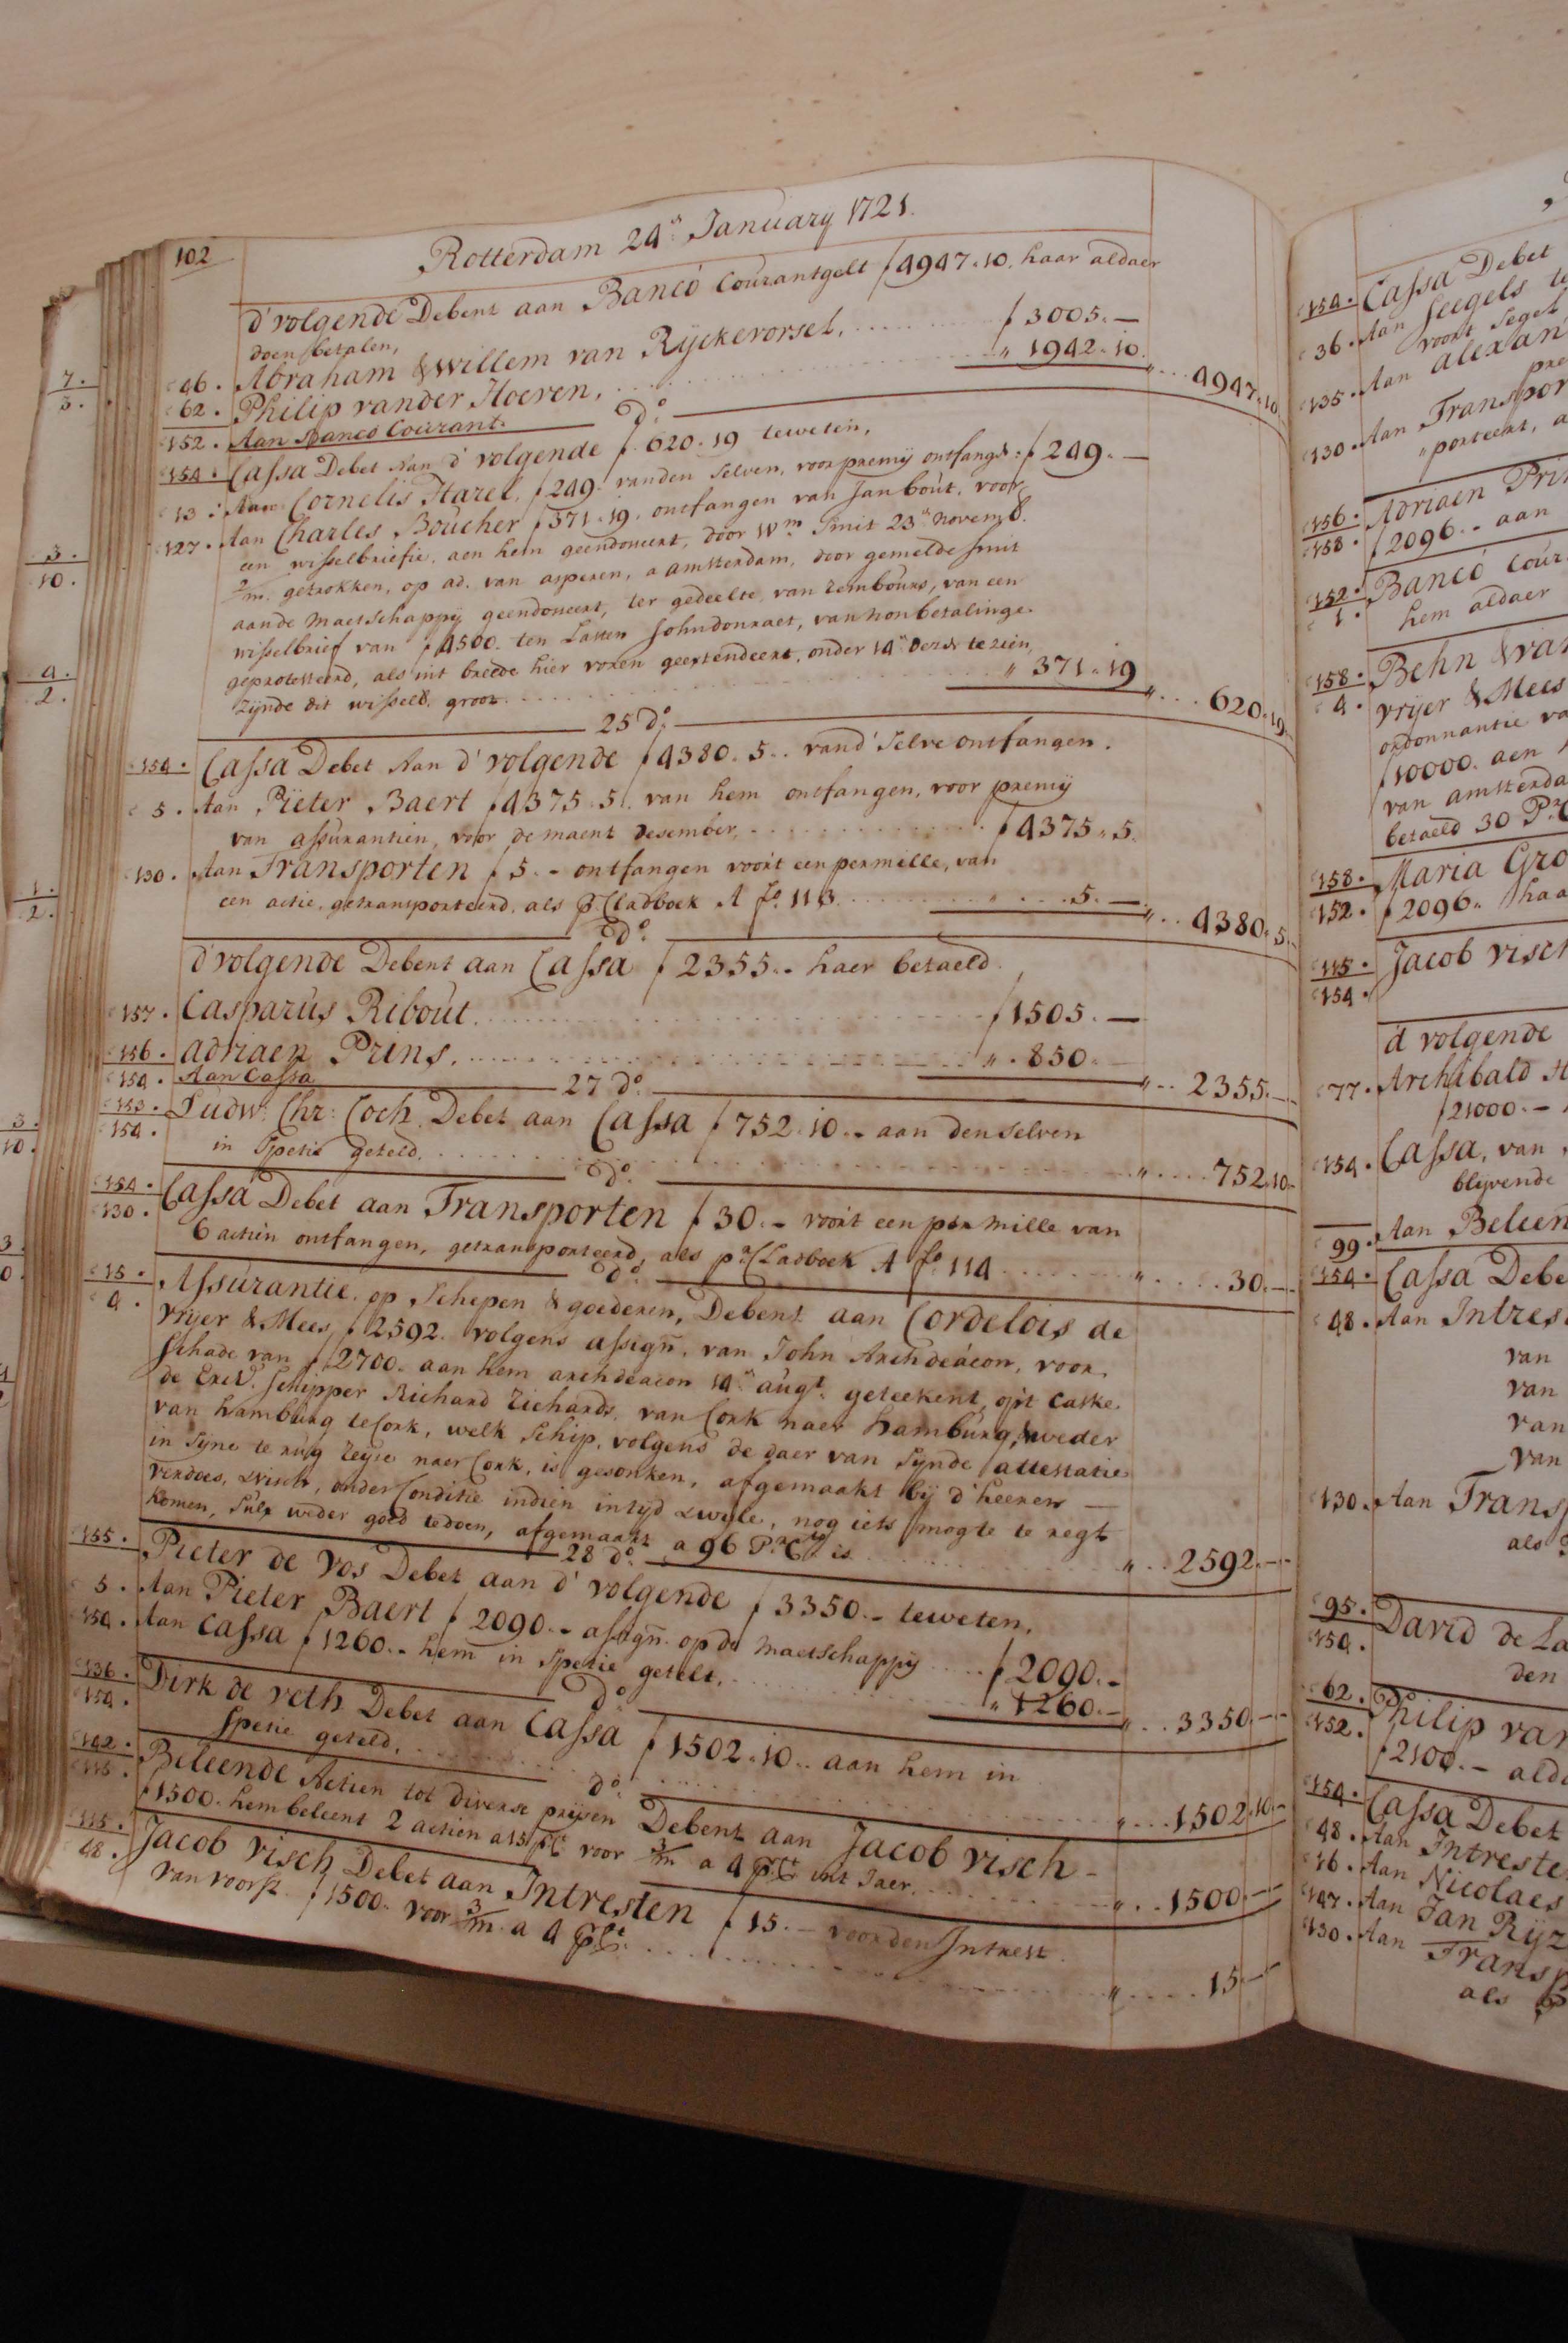 102
Rotterdam 24.n January 1721.
d'volgende Debent aan Banco Courantgelt f 4947.10. haar aldaer
doen betalen,
46. Abraham & willem van Rÿckevorsel, f 3005.—
62. Philip vander Hoeven, " 1942.10. " 4947.10
152. Aan Banco Courant.
do
154. Cassa Debet Aan d'volgende f 620.19 teweten,
13. Aan Cornelis Harel, f 249. vanden selven, voor premÿ ontfangt: f 249.—
127. Aan Charles Boucher f 371.19. ontfangen van Jan bout, voor
een wisselbriefie, aen hem geendoneert, door Wm Smit 23n novemb.
2/m. getrokken, op ad. van asperen, a amsterdam, door gemelde smit
aande maetschappÿ geendoneert, ter gedeelte van rembours, van een
wisselbrief van f 4500. ten Lasten John donraet, van non betalinge.
geprotesteerd, als int breede hier voren geextendeert, onder 14n dezer te zien,
zÿnde dit wisselb. groot " 371.19 " 620.19
25 do
154. Cassa Debet Aan d'volgende f 4380.5.. vand'selve ontfangen.
5. Aan Pieter Baert f 4375.5. van hem ontfangen, voor premÿ
van assurantien, voor de maent desember, f 4375.5.
130. Aan Transporten f 5.- ontfangen voor't een permille, van
een actie, getransporteerd, als p Cladboek A fo. 113 " 5.— " 4380.5.
do
d'volgende Debent aan Cassa f 2355.. haer betaeld.
157. Casparus Ribout. f 1505.—
156. adriaen Prins. " 850.— " 2355.—
154. Aan Cassa
27 do
153. Ludw: Chr: Coch. Debet aan Cassa f 752.10.- aan den selven
154. in Spetie geteld. " 752.10.-
do
154. Cassa Debet aan Transporten f 30.- voor't een per mille van
130. 6 actien ontfangen, getransporteerd, als pr Cladboek A fo 114 " 30.—
do
15. Assurantie. op Schepen & goederen, Debent aan Cordelois de
4. vrijer & Mees f 2592. volgens assign. van John Archdeacon, voor.
schade van f 2700. aan hem archdeacon 14n augt. geteekent, op't Caske.
de Exel. schipper Richard richards. van Cork naer hamburg, & weder
van hamburg te Cork, welk schip, volgens de daer van sÿnde attestatie
in sÿne te rug reÿse naer Cork, is gesonken, afgemaakt bÿ d'heeren —
verdoes, & visch, onder Conditie indien in tÿd & wÿle, nog iets mogte te regt
komen, sulx weder goed te doen, afgemaakt a 96 Pr Cto is " 2592.—
28 do
155. Pieter de Vos Debet aan d'volgende f 3350.- teweten,
5. Aan Pieter Baert f 2090.- assign. op de maetschappÿ f 2090.-
154. Aan Cassa f 1260.- hem in Spetie getelt. " 1260.- " 3350.—
do
136. Dirk de veth Debet aan Cassa f 1502.10.. aan hem in
154. Spetie geteld. " 1502.10.-
do
142. Beleende Actien tot diverse prÿsen Debent aan Jacob visch -
115. f 1500. hem beleent 2 actien a 15 pCt voor 3/m a 4 pCt int Jaer. " 1500.—
115. Jacob visch Debet aan Intresten f 15.- voor den Intrest.
48. van voorst. f 1500. voor 3/m a 4 pCt. " 15.—
7.
3.
3.
10.
4.
2.
1.
2.
3.
10.
154. Cassa Debet
36. Aan seegels
voort segel
135. Aan alexan
130. Aan Transpor
porteert, a
156. Adriaen Prin
158. f 2096.- aan
152. Banco Cour
1. hem aldaer
158. Behn & van
4. vrijer & Mees
ordonnantie va
f 10000. aen
van amsterda
betaeld 30 Pr C
158. Maria Gro
152. f 2096.. haa
115. Jacob visch
154.
d volgende
77. Archibald
f 21000.-
154. Cassa, van
blijvende
99. Aan Beleen
154. Cassa Debe
48. Aan Intres
van
van
van
van
130. Aan Transp
als
95. David de La
154. den
62. Philip van
152. f 2100.- alda
154. Cassa Debet
48. Aan Intreste
16. Aan Nicolaes
147. Aan Jan Rÿz
130. Aan Transp
als p